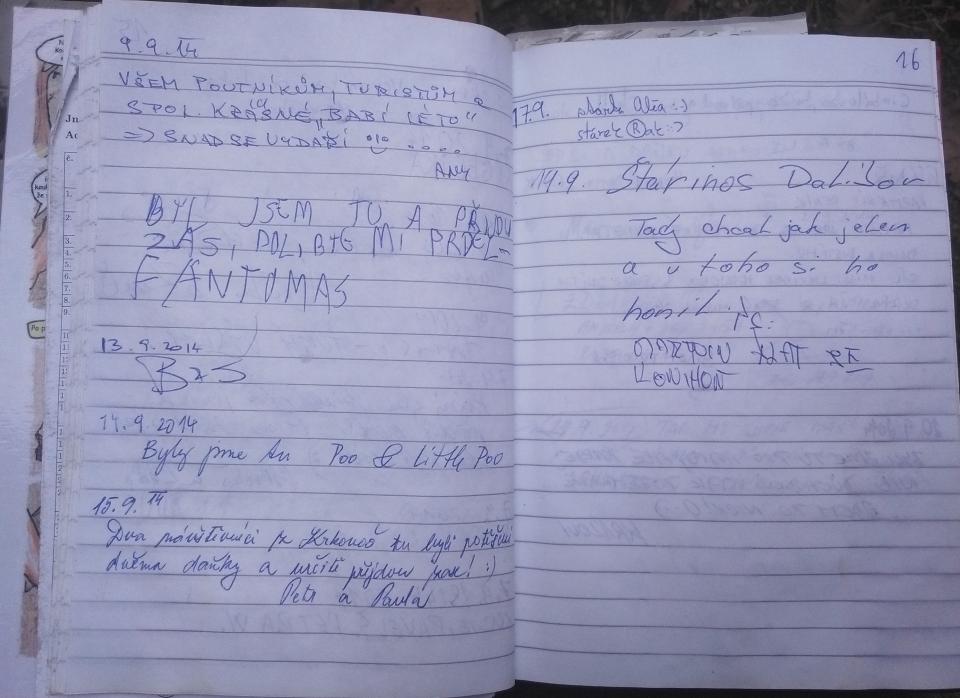 9.9.14
VŠEM POUTNÍKŮM, TURISTŮM a
SPOL. KRÁSNÉ „BABÍ LÉTO“
=> SNAD SE VYDAŘÍ ....
BYL JSEM TU A PŘIJDU
ZAS, POLIBTE MI PRDEL-
FANTOMAS
13.9.2014
14.9.2014
Byly jsme tu Poo & Little Poo
15.9.14
Dva návštěvníci z Krkonoš tu byli potěšeni
dvěma daňky a určitě přijdou zas! :)
Petr a Pavla
16
17.9. stárka Alča :-)
stárek Ⓡak :-)
19.9. Štárinos Dalibor
Tady chcal jak jelen
a u toho si ho
honil